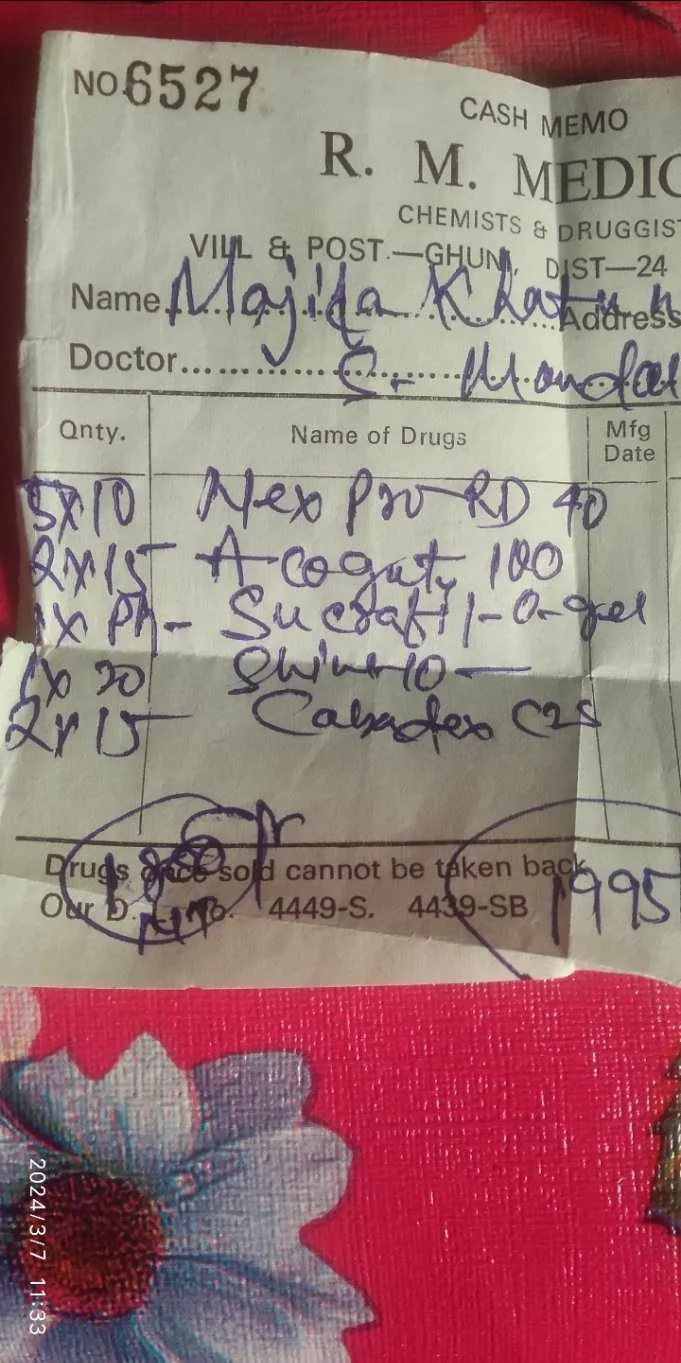 NO. 6527
CASH MEMO
R. M. MEDIC
CHEMISTS & DRUGGIST
VILL & POST.—GHUNI, DIST—24
Name Majifa Khatun Address
Doctor S. Mondal
Qnty. Name of Drugs Mfg Date
5x10 Nexpro-RD 40
2x15 A-coguty 100
1x Ph- Sucrafil-O-gel
1x20
2x15 C25
Drugs once sold cannot be taken back
Our D. L. No. 4449-S. 4439-SB
1995
2024/3/7 11:33